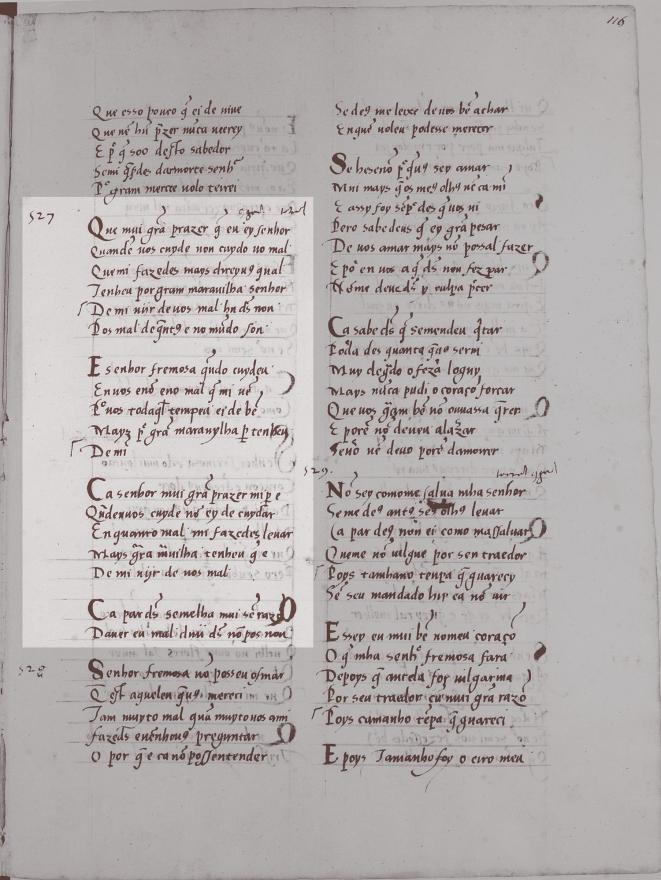 116
Que esso pouco q̃ ei de uiue
Que nẽ hũ p̃zer nũca ueerey
E p̃ q̃ soo desto sabedor
Semi q̃sdes dar morte senh̃
P̃ gram merce uolo terrei
527
Que mui grã prazer q̃ eu ey senhor
Quando uos cuyde non cuydo no mal
Quemi fazedes mays direyuꝯ qual
Tenheu por gram marauilha senhor
De mi uijr de uos mal hu ds̃ non
Pos mal de q̃ntꝯ eno mũdo son
E senhor fremosa q̃ndo cuydeu
En uos enõ eno mal q̃ mi uẽ
P̃ uos todaql̃ tempeu ei de bẽ
Mays p̃ grã marauylha p̃ tenheu
De mi
Ca senhor mui grã prazer mi p̃ e
Quãdeuuos cuyde nõ ey de cuydar
En quanto mal mi fazedes leuar
Mays grã m̃uilha tenheu q̃ e
De mi uijr de uos mal
Ca par ds̃ semelha mui sẽ razõ
Dauer eu mal dũu ds̃ nõ pos non
528
Senhor fremosa no posseu osmar
Q̃ est aquel en quꝯ mereci
Tam muyto mal quã muyto uos ami
fazeds̃ euẽ nhouꝯ preguntar
O por q̃ e ca nõ possentender
Se deꝯ me leixe de uos bẽ achar
En que uoleu podesse merecer
Se he senõ p̃ quꝯ sey amar
Mui mays q̃ os meꝯ olhꝯ nẽ ca mi
E assy foy sẽp̃ des q̃ uos ui
Pero sabe deus q̃ ey grã pesar
De uos amar mays no possal fazer
E põ en uos a q̃ ds̃ non fez par
Nõ me deuedꝯ y culpa põer
Ca sabe ds̃ q̃ semendeu q̃tar
Poderades quanta q̃ uos serui
Muy de g̃do o fezera loguy
Mays nũca pudi o coraçõ forçar
Que uos q̃m bẽ nõ ouuessa q̃rer
E porẽ nõ deueu a lazerar
Senõ nẽ deuo porẽ damorrer
529
Nõ sey comome salua mha senhor
Seme deꝯ antꝯ seꝯ olhꝯ leuar
Ca par deꝯ non ei como massaluar
Queme nõ uilgue por seu traedor
Poys tamhano tenpa q̃ guareçy
Sẽ seu mandado hir ea nõ uir
E sey eu mui bẽ nomeu coraçõ
O q̃ mha senh̃ fremosa fara
Depoys q̃ antela for uilgarma
Por seu traedor cũ mui grã razõ
Poys camanho tẽpa q̃ guareci
E poys Tamanho foy o erro meu